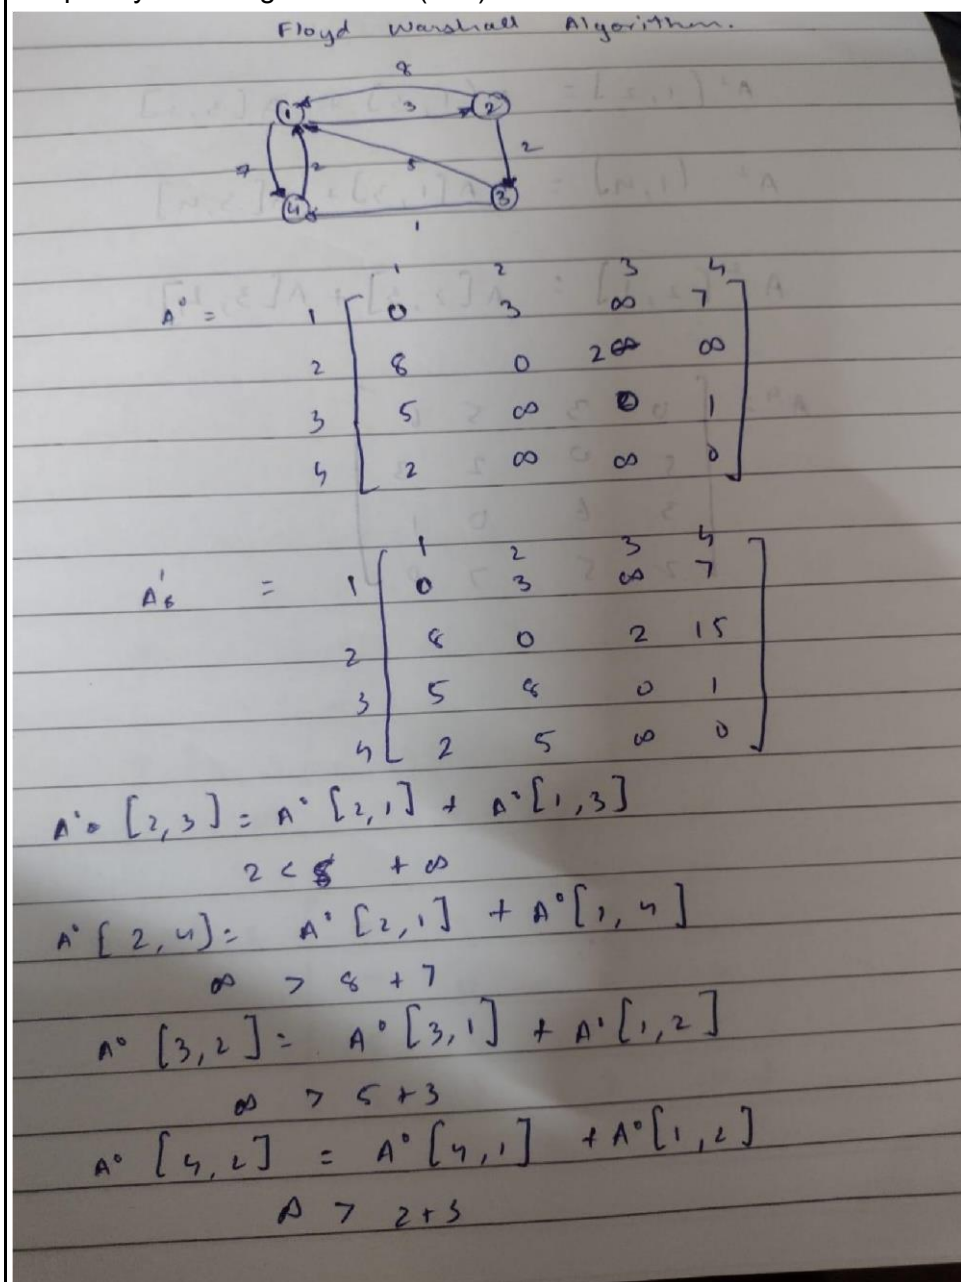 Floyd Warshall Algorithm.
8
1 3 2
7 2 5 2
4 3
1
1 2 3 4
A⁰ = 1 0 3 ∞ 7
2 8 0 2 ∞
3 5 ∞ 0 1
4 2 ∞ ∞ 0
1 2 3 4
A¹ = 1 0 3 ∞ 7
2 8 0 2 15
3 5 8 0 1
4 2 5 ∞ 0
A⁰ [2,3] = A⁰ [2,1] + A⁰ [1,3]
2 < 8 + ∞
A⁰ [2,4] = A⁰ [2,1] + A⁰ [1,4]
∞ > 8 + 7
A⁰ [3,2] = A⁰ [3,1] + A⁰ [1,2]
∞ > 5 + 3
A⁰ [4,2] = A⁰ [4,1] + A⁰ [1,2]
∞ > 2 + 3